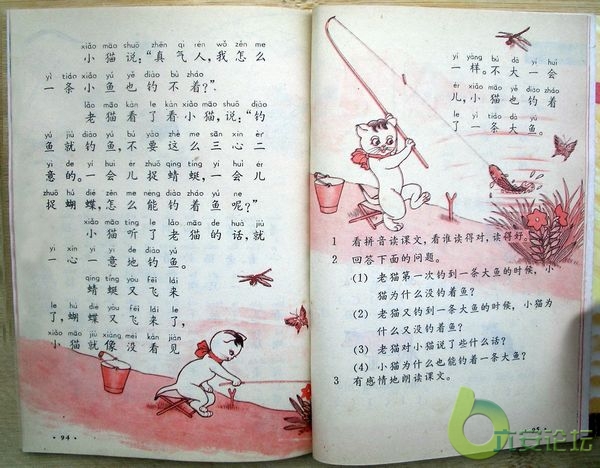 xiǎo māo shuō zhēn qì rén wǒ zěn me
小猫说：“真气人，我怎么
yì tiáo xiǎo yú yě diào bù zháo
一条小鱼也钓不着？”
lǎo māo kàn le kàn xiǎo māo shuō diào
老猫看了看小猫，说：“钓
yú jiù diào yú bú yào zhè me sān xīn èr
鱼就钓鱼，不要这么三心二
yì de yí huì ér zhuō qīng tíng yí huì ér
意的。一会儿捉蜻蜓，一会儿
zhuō hú dié zěn me néng diào zháo yú ne
捉蝴蝶，怎么能钓着鱼呢？”
xiǎo māo tīng le lǎo māo de huà jiù
小猫听了老猫的话，就
yì xīn yí yì de diào yú
一心一意地钓鱼。
qīng tíng yòu fēi lái
蜻蜓又飞来
le hú dié yòu fēi lái le
了，蝴蝶又飞来了，
xiǎo māo jiù xiàng méi kàn jiàn
小猫就像没看见
·94·
yí yàng bú dà yí huì
一样。不大一会
ér xiǎo māo yě diào zháo
儿，小猫也钓着
le yì tiáo dà yú
了一条大鱼。
1 看拼音读课文，看谁读得对，读得好。
2 回答下面的问题。
(1) 老猫第一次钓到一条大鱼的时候，小
猫为什么没钓着鱼？
(2) 老猫又钓到一条大鱼的时候，小猫为
什么又没钓着鱼？
(3) 老猫对小猫说了些什么话？
(4) 小猫为什么也能钓着一条大鱼？
3 有感情地朗读课文。
·95·
六安论坛